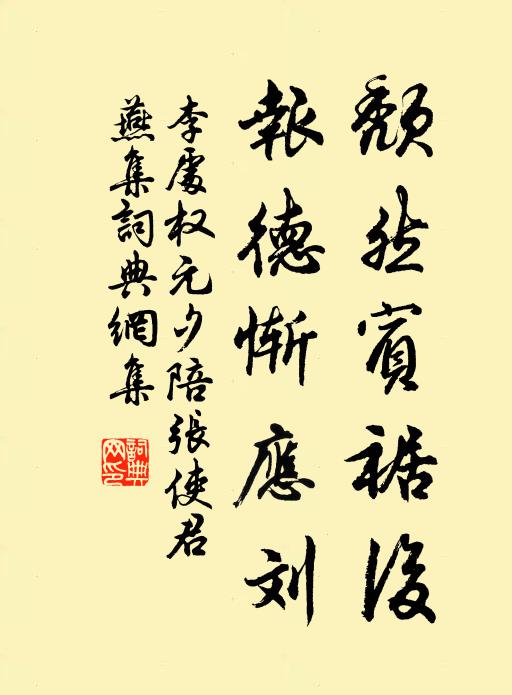 頹然賓裾後
報德慚應刘
李處权元夕陪張使君
燕集詞典網集
詞典网印